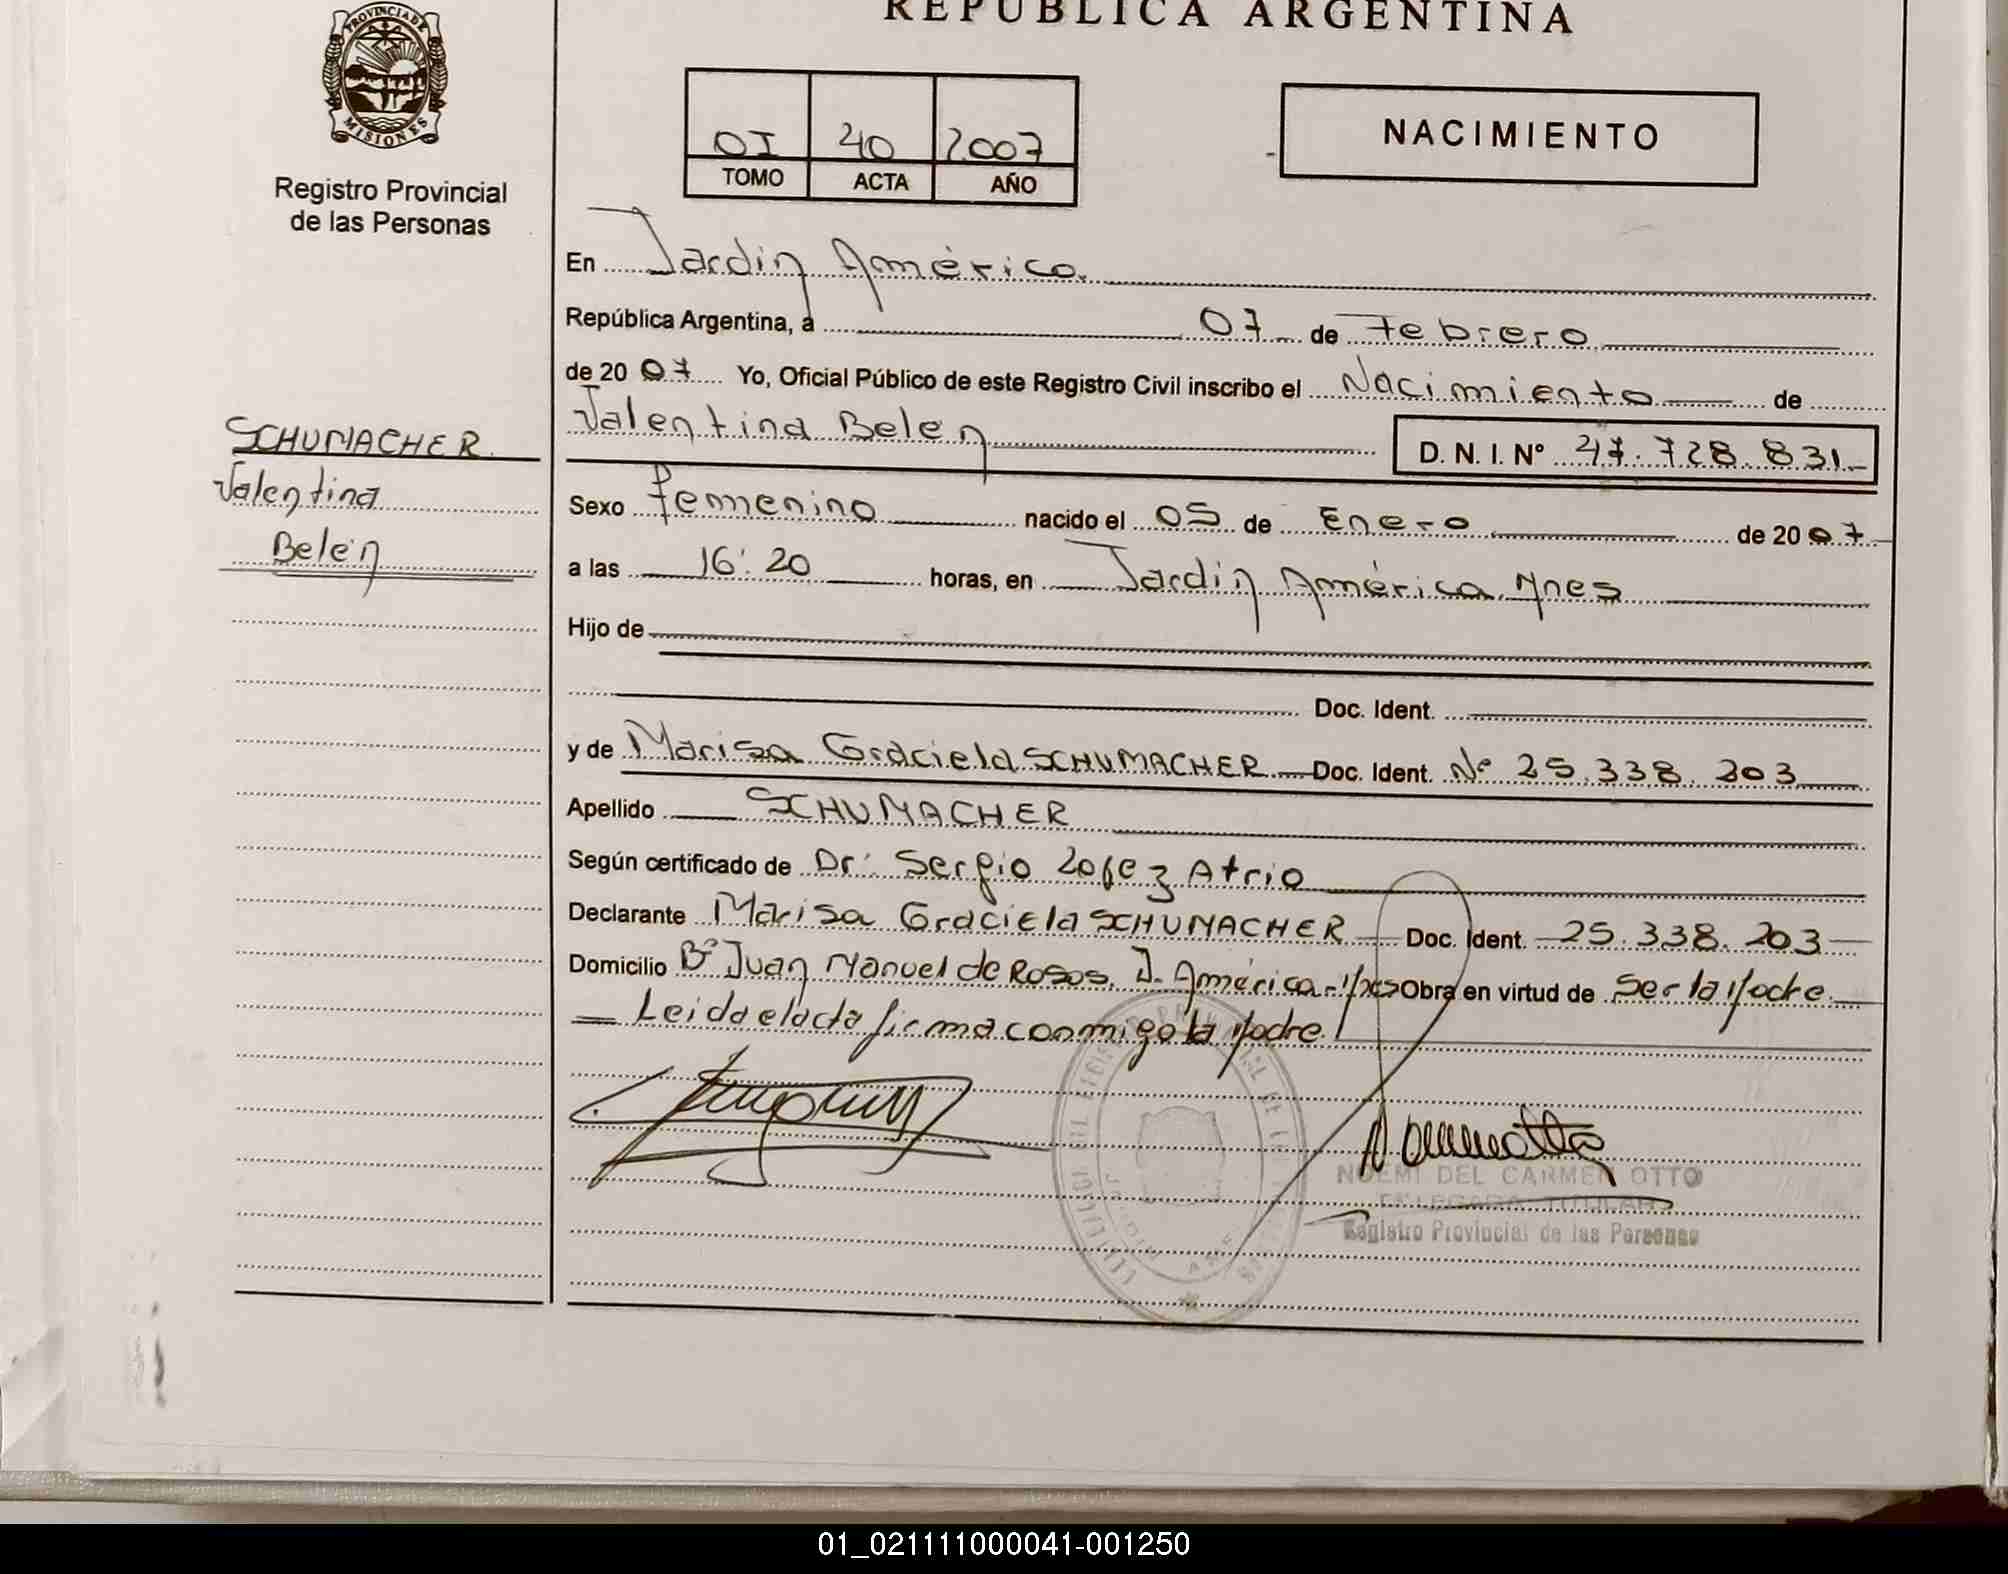 REPUBLICA ARGENTINA
PROVINCIA DE
MISIONES
Registro Provincial
de las Personas
OI 40 2007
TOMO ACTA AÑO
NACIMIENTO
En Jardin América
República Argentina, a 07 de Febrero
de 2007 Yo, Oficial Público de este Registro Civil inscribo el Nacimiento de
Valentina Belen D. N. I. Nº 47.728.831
SCHUMACHER
Valentina
Belén
Sexo femenino nacido el 05 de Enero de 2007
a las 16:20 horas, en Jardin América Mnes
Hijo de
Doc. Ident.
y de Marisa Graciela SCHUMACHER Doc. Ident. Nº 25.338.203
Apellido SCHUMACHER
Según certificado de Dr: Sergio Lopez Atrio
Declarante Marisa Graciela SCHUMACHER Doc. Ident. 25.338.203
Domicilio Bº Juan Manuel de Rosas, J. América - Mnes Obra en virtud de Ser la Madre
Leida el acta firma conmigo la Madre.
NOEMI DEL CARMEN OTTO
DELEGADA TITULAR
Registro Provincial de las Personas
01_021111000041-001250